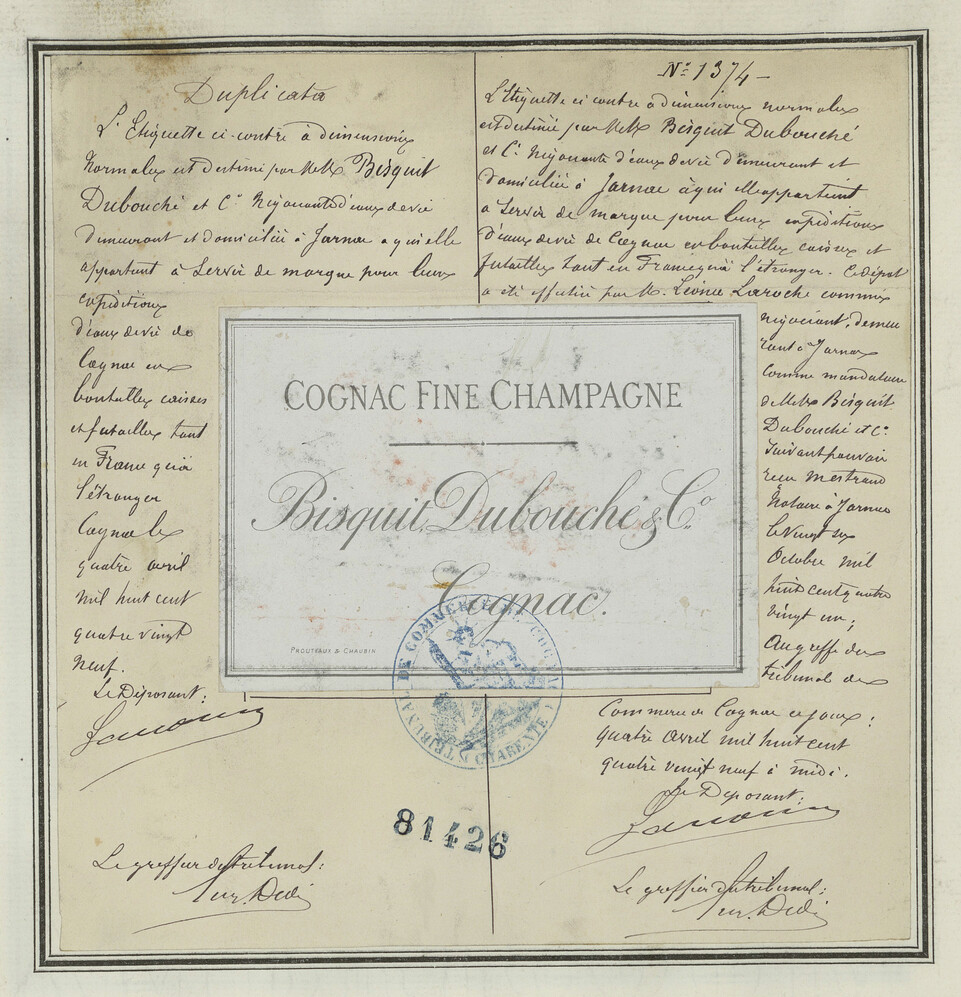 Duplicata
L'Etiquette ci-contre à dimensions
Normales est destiné par MM Bisquit
Dubouché et Cie Négociants d'eaux de vie
demeurant et domiciliés à Jarnac a qui elle
appartient à Servir de marque pour leurs
expéditions
d'eaux de vie de
Cognac en
bouteilles caisses
et futailles tant
en France qu'à
l'étranger
Cognac le
quatre avril
mil huit cent
quatre vingt
neuf.
Le Déposant:
Le greffier du tribunal:
No 1374-
L'Etiquette ci contre à dimensions normales
est destinée par MM Bisquit Dubouché
et Cie Négociants d'eaux de vie demeurant et
domiciliés à Jarnac à qui elle appartient
a Servir de marque pour leurs expéditions
d'eaux de vie de Cognac en bouteilles caisses et
futailles tant en France qu'à l'étranger. Ce dépôt
a été effectué par M. Léonce Laroche commis
négociant, demeu
rant à Jarnac
comme mandataire
de MM Bisquit
Dubouché et Cie
Suivant pouvoir
reçu
Notaire à Jarnac
le Vingt six
Octobre mil
huit cent quatre
vingt un;
Au greffe du
tribunal de
Commerce de Cognac ce jour:
quatre Avril mil huit cent
quatre vingt neuf à midi.
Le Déposant:
Le greffier du tribunal:
COGNAC FINE CHAMPAGNE
Bisquit, Dubouché & Co
Cognac.
PROUTEAUX & CHAUBIN
TRIBUNAL DE COMMERCE DE COGNAC
CHARENTE
81426